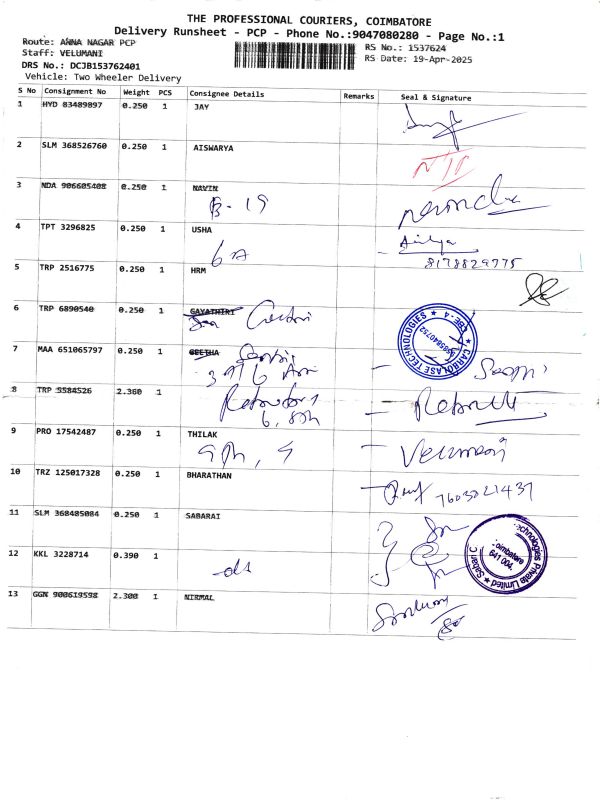 THE PROFESSIONAL COURIERS, COIMBATORE
Delivery Runsheet - PCP - Phone No.:9047080280 - Page No.:1
Route: ANNA NAGAR PCP
RS No.: 1537624
Staff: VELUMANI
RS Date: 19-Apr-2025
DRS No.: DCJB153762401
Vehicle: Two Wheeler Delivery
S No Consignment No Weight PCS Consignee Details Remarks Seal & Signature
1 HYD 83489897 0.250 1 JAY
2 SLM 368526760 0.250 1 AISWARYA
3 NDA 906605408 0.250 1 NAVIN
B-19
4 TPT 3296825 0.250 1 USHA
8178829775
5 TRP 2516775 0.250 1 HRM
6 TRP 6890540 0.250 1 GAYATHIRI
CARBOLASE TECHNOLOGIES
CBE-4
7 MAA 651065797 0.250 1 GEETHA
8 TRP 5584526 2.360 1
9 PRO 17542487 0.250 1 THILAK
10 TRZ 125017328 0.250 1 BHARATHAN
7603021437
11 SLM 368485084 0.250 1 SABARAI
12 KKL 3228714 0.390 1
-do-
Technologies Private Limited
Coimbatore
641 004.
13 GGN 900619598 2.300 1 NIRMAL